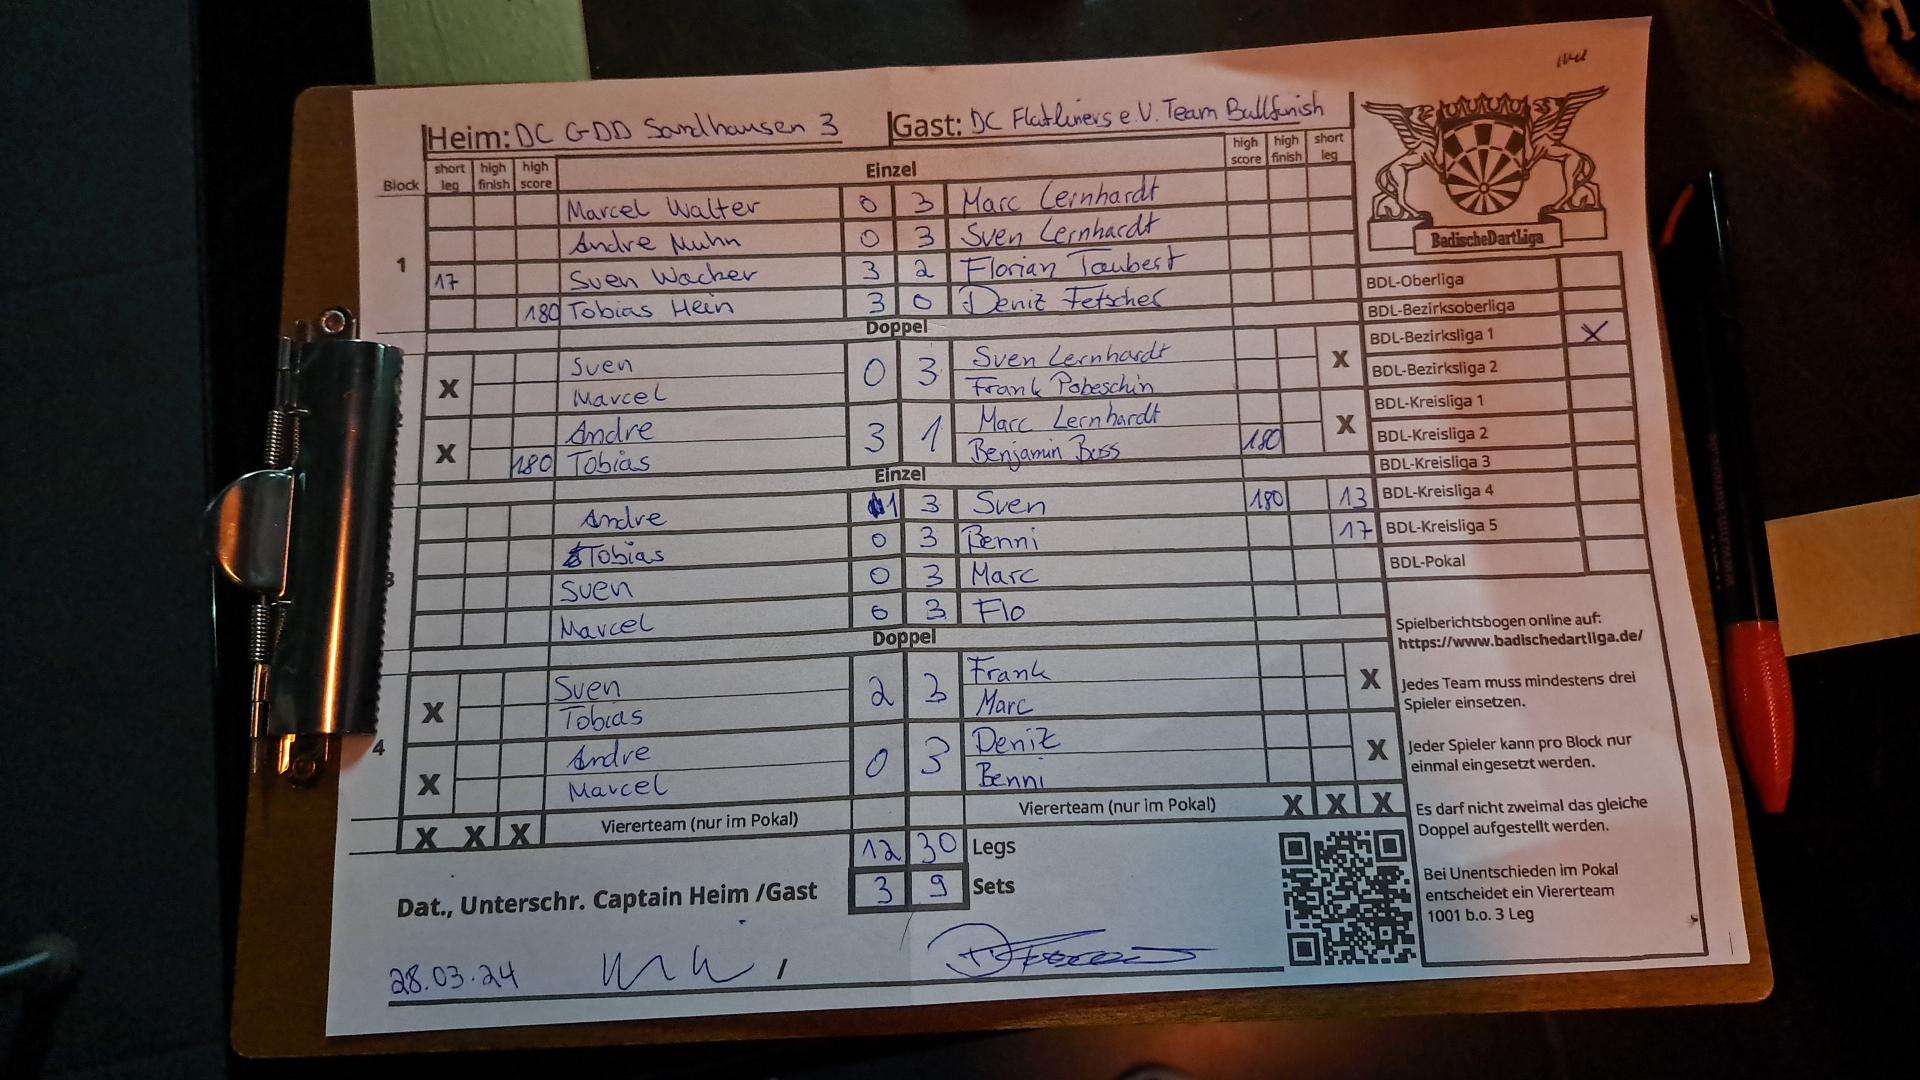 Heim: DC GDD Sandhausen 3 Gast: DC Flatliners e.V. Team Bullfinish
Block short leg high finish high score Einzel high score high finish short leg
Marcel Walter 0 3 Marc Lernhardt
Andre Nuhn 0 3 Sven Lernhardt
1 17 Sven Wacker 3 2 Florian Taubert
180 Tobias Hein 3 0 Deniz Fetscher
Doppel
X Sven 0 3 Sven Lernhardt X
Marcel Frank Pobeschin
X Andre 3 1 Marc Lernhardt X
180 Tobias Benjamin Boss 180
Einzel
Andre 1 3 Sven 180 13
Tobias 0 3 Benni 17
3 Sven 0 3 Marc
Marcel 0 3 Flo
Doppel
X Sven 2 3 Frank X
Tobias Marc
4 X Andre 0 3 Deniz X
Marcel Benni
X X X Viererteam (nur im Pokal) Viererteam (nur im Pokal) X X X
12 30 Legs
3 9 Sets
Dat., Unterschr. Captain Heim /Gast
28.03.24
BadischeDartLiga
BDL-Oberliga
BDL-Bezirksoberliga
BDL-Bezirksliga 1 X
BDL-Bezirksliga 2
BDL-Kreisliga 1
BDL-Kreisliga 2
BDL-Kreisliga 3
BDL-Kreisliga 4
BDL-Kreisliga 5
BDL-Pokal
Spielberichtsbogen online auf:
https://www.badischedartliga.de/
Jedes Team muss mindestens drei
Spieler einsetzen.
Jeder Spieler kann pro Block nur
einmal eingesetzt werden.
Es darf nicht zweimal das gleiche
Doppel aufgestellt werden.
Bei Unentschieden im Pokal
entscheidet ein Viererteam
1001 b.o. 3 Leg